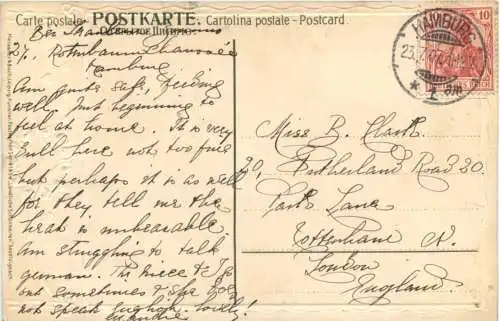 Carte postale - POSTKARTE - Cartolina postale - Postcard.
HAMBURG
23.
* 1. *
10
DEUTSCHES REICH
Bei
27, Rothenbaum Chaussée
Hamburg.
Am quite safe, feeling
well. Just beginning to
feel at home. It is very
dull here not too fine
but perhaps it is as well
for they tell me the
heat is unbearable.
Am struggling to talk
german. The niece & I go
out sometimes & she does
not speak English. Lovely!
Miss B.
30, Sutherland Road 30,
Park Lane
Tottenham N.
London
England.